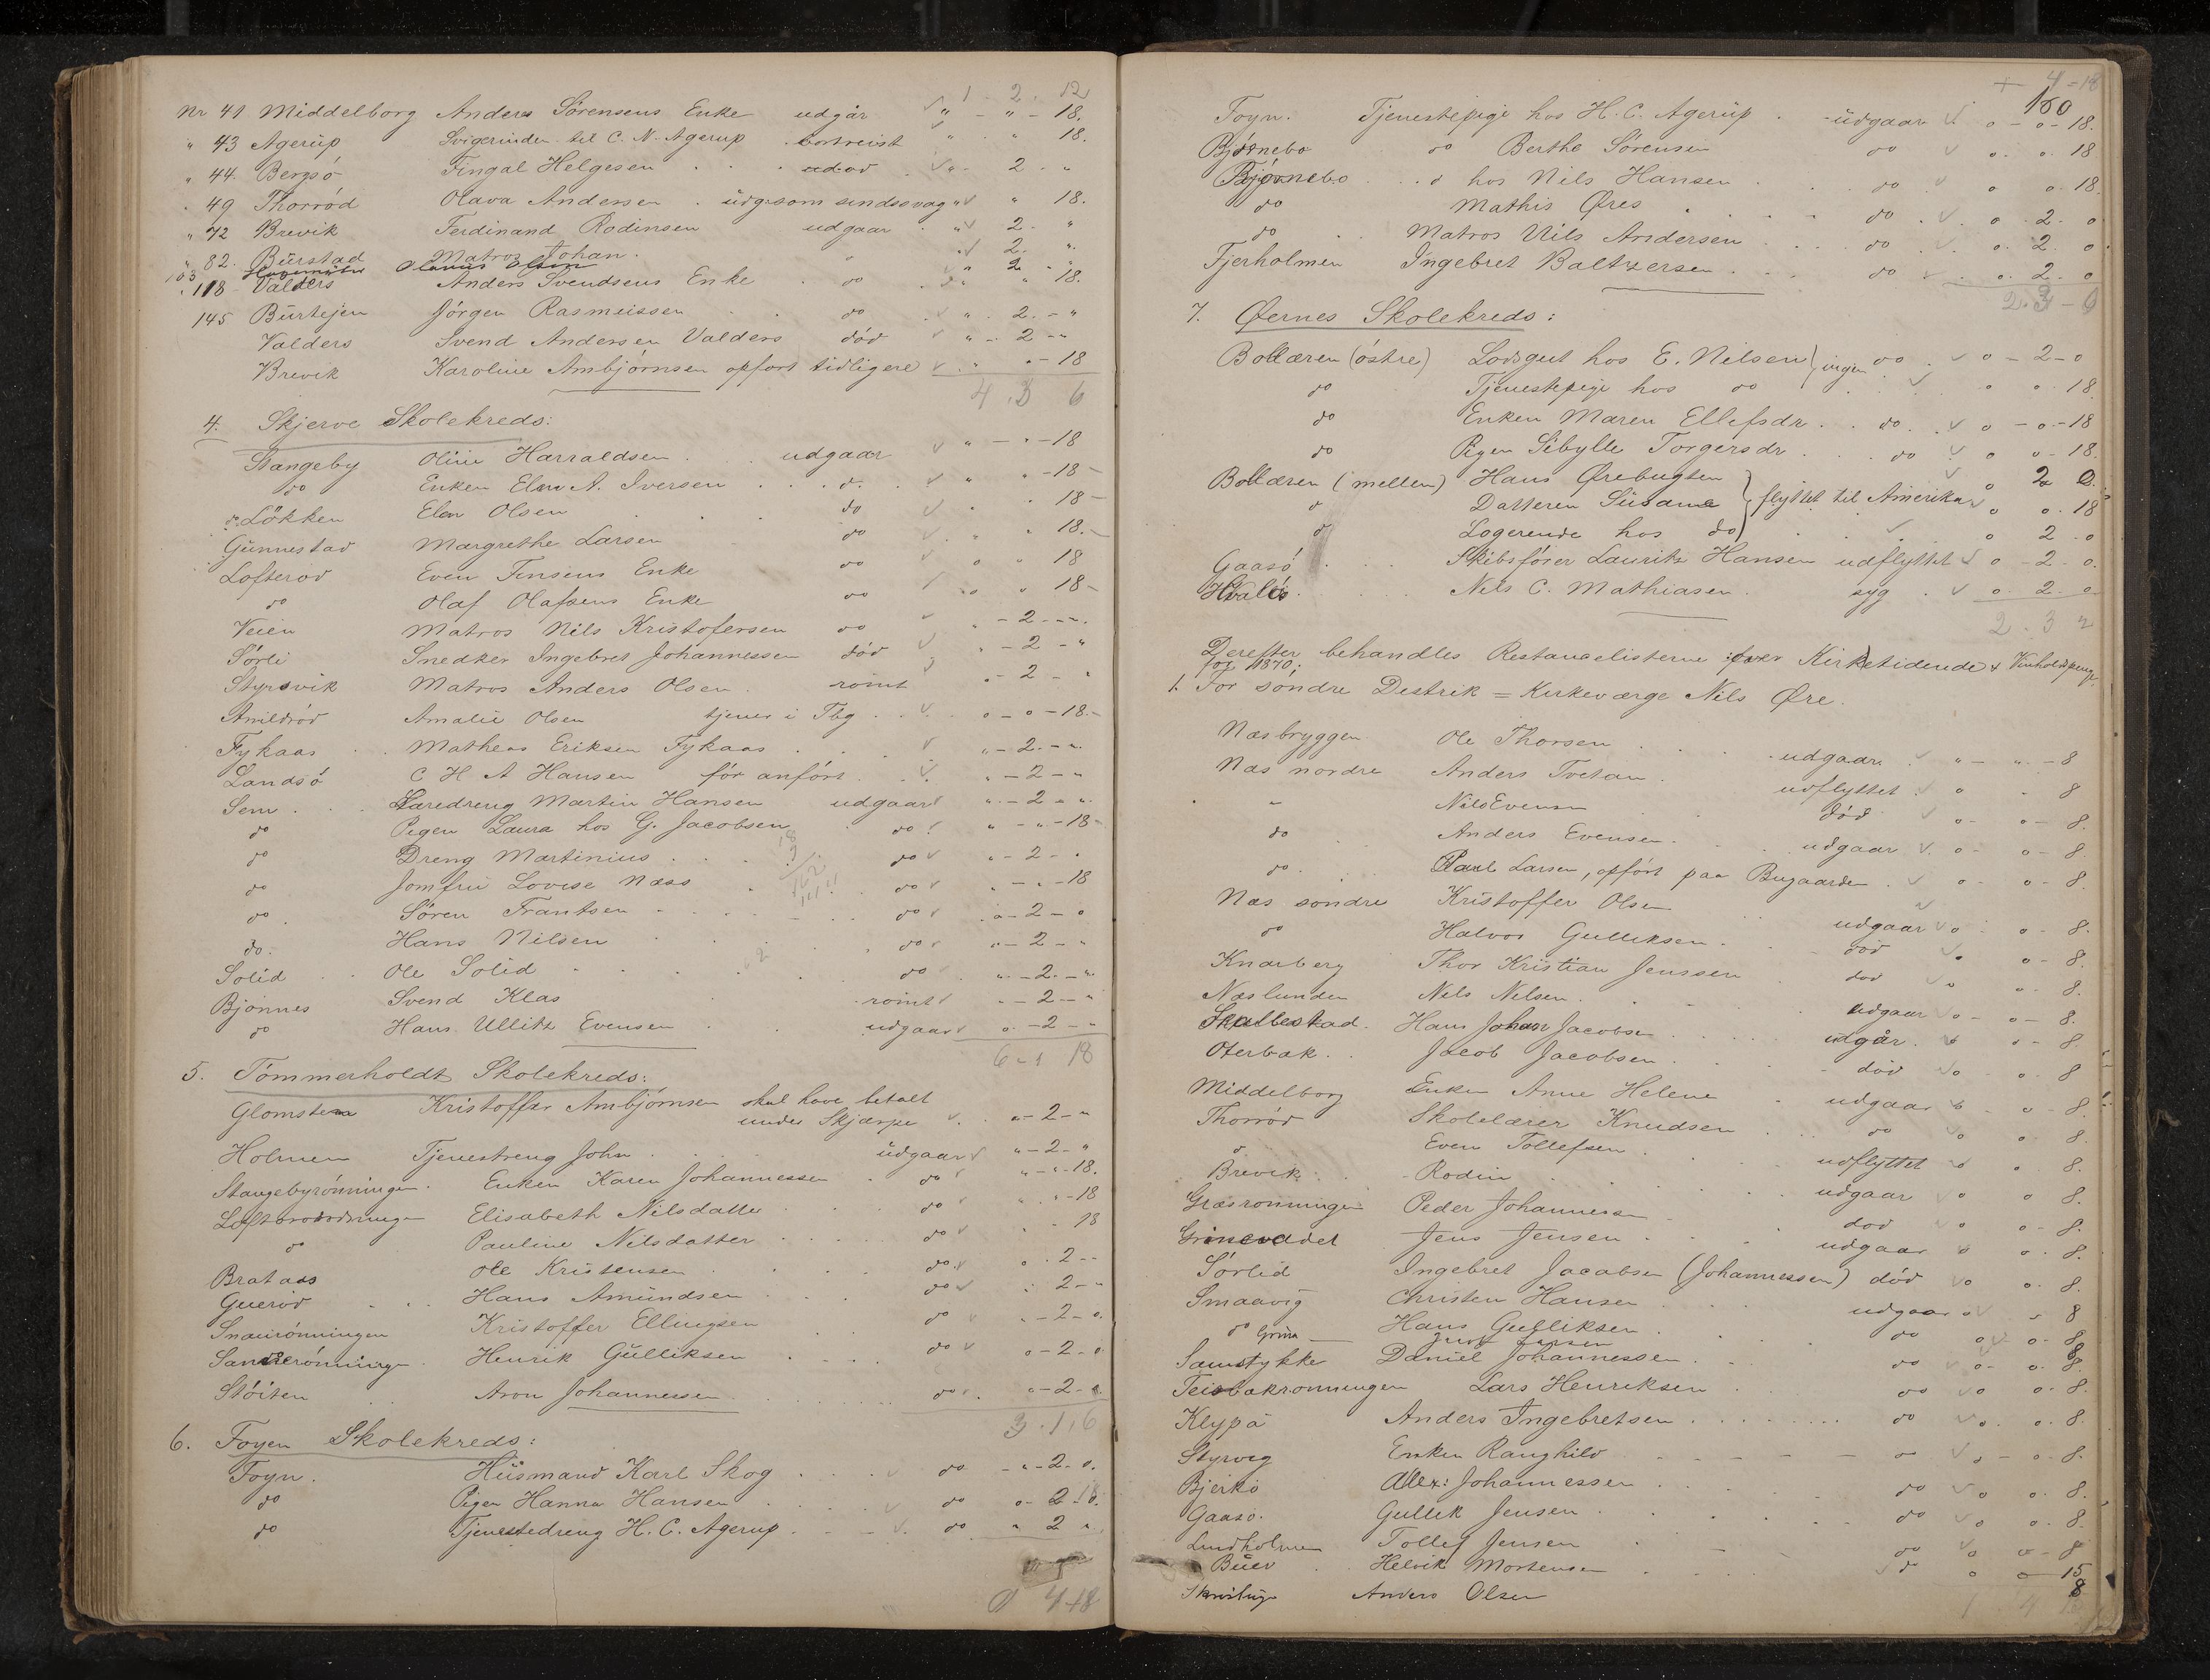 1 - 2 - 12
Nr 41 Middelborg Anders Sørensens Enke udgår " - " - 18.
" 43 Agerup Svigerinden til C. N. Agerup bortreist " " 18.
" 44. Bergsö Fingal Helgesen " - 2 - "
" 49 Thorröd Olava Andersen udg. som sindssvag " " 18.
" 72 Brevik Ferdinand Rodinsen udgaar " 2 - "
" 82. Bürstad Matros Johan. " 2. "
103 Olaus Olsen " 2 - "
" 118 Valders Anders Svendsens Enke do " " 18.
145 Bürtejen Jörgen Rasmussen do " 2. - "
Valders Svend Andersen Valders död " - 2 - "
Brevik Karoline Ambjörnsen opfort tidligere " " - 18
4 . 3 6
4. Skjerve Skolekreds:
Stangeby Oline Harraldsen udgaar " - " - 18
do Enken Elen A. Iversen d. " " - 18 -
do Lökken Elen Olsen do " 18 -
Gunnestad Margrethe Larsen do " " 18. -
Lofteröd Even Jensens Enke do o " 18
do Olaf Olafsens Enke do " o 18 -
Veien Matros Nils Kristofersen do " - 2 - "
Sörli Snedker Ingebret Johannessen död " - 2 - "
Styrsvik Matros Anders Olsen römt " - 2 - "
Amildröd Amalie Olsen tjener i Tbg o - o - 18. -
Fykaas Matheas Eriksen Fykaas " - 2. - "
Landsö C H A Hansen för anfört " - 2 - "
Sem Læredreng Martin Hansen udgaar " - 2 - "
do Pigen Laura hos G. Jacobsen do " - " - 18 -
do Dreng Martinius do " - 2 - "
do Jomfru Lovise Næss do " - " - 18
do Sören Frantsen do o - 2 - o
do. Hans Nilsen do " - 2 - "
Solid Ole Solid do " - 2. - "
Bjönnes Svend Klas römt " - 2 - "
do Hans Ullitz Evensen udgaar o - 2 - "
6 - 1 18
5. Tömmerholdt Skolekreds:
Glomstein Kristoffer Ambjörnsen skal have betalt
under Skjærpe " - 2 - "
Holmen Tjenestreng John udgaar " - 2 - "
Stangebyrönningen Enken Karen Johannessen do " - " - 18.
Elisabeth Nilsdatter do " " - 18
do Pauline Nilsdatter do " - 18
Brataas Ole Kristensen do o . 2 -
Gueröd Hans Amundsen do " 2 - "
Kristoffer Ellingsen do " - 2 - o
Henrik Gulliksen do o - 2 - o
Stöiten Aron Johannessen do o - 2 - o
3 . 1 , 6
6. Foyen Skolekreds:
Foyn. Husmand Karl Skog do - " - 2 - o.
do Pigen Hanna Hansen do o - 18.
do Tjenestedreng H. C. Agerup do " 2 "
4 - 18
4 - 18
160
Foyn. Tjenestepige hos H. C. Agerup udgaar o - o - 18.
Björnebo do Berthe Sörensen do o . o . 18
Björnebo d hos Nils Hansen do o o . 18.
do Mathis Øres do o . 2 . o
do Matros Nils Andersen do o . 2 . o
Fjerholmen Ingebret Baltzersen do o . 2 . o
2 . 3 - 0
7. Øernes Skolekreds:
Bollæren (östre) Lodsgut hos E. Nilsen ingen do o - 2 - o
do Tjenestepige hos do o o . 18
do Enken Maren Ellefsdr do o - o - 18
do Pigen Sibylle Torgersdr do o o - 18.
Bollæren (mellem) Hans Ørebugten o 2 0.
d Datteren Susanne flyttet til Amerika o o . 18
d Logerende hos do o 2 . o
Gaasö Skibsförer Lauritz Hansen udflyttet o - 2 - o.
Hvalö Nils C. Mathiasen syg o . 2 . o
2 . 3
Derefter behandles Restancelisterne over Kirketidende &
for 1870;
1. For söndre Destrik = Kirkeværge Nils Øre.
Næsbryggen Ole Thorsen udgaar " - " - 8
Næs nordre Anders Tvetan udflyttet o " 8
" Nils Evensen död o - o - 8.
do Anders Evensen udgaar o - o - 8.
do Karl Larsen, opfört paa Bugaarden o - o - 8.
Næs söndre Kristoffer Olsen udgaar o o - 8.
do Halvor Gulliksen död o o - 8.
Knarberg Thor Kristian Jenssen död o o - 8.
Næslunden Nils Nilsen udgaar o - o - 8.
Skallestad Hans Johan Jacobsen udgår o o - 8
Oterbæk Jacob Jacobsen död o - o . 8
Middelborg Enken Anne Helene udgaar o - o - 8.
Thorröd Skolelærer Knudsen do o o . 8.
d Even Tollefsen udflyttet o o . 8.
Brevik Rodin udgaar o o 8.
Græsrönningen Peder Johannessen död o o - 8.
Jens Jensen udgaar o o . 8.
Sörlid Ingebret Jacobsen (Johannessen) död o o . 8.
Smaavig Christen Hansen udgaar o o 8
do Hans Gulliksen do o o - 8
Grina Larsen 8
Samstykke Daniel Johannessen do o - o . 8.
Teisbækrönningen Lars Henriksen do o o - 8.
Klypa Anders Ingebretsen do o . o . 8.
Styrvig Enken Ranghild o o - o - 8.
Bjerkö Alex: Johannessen do o o . 8.
Gaasö. Gullik Jensen do o o . 8.
Lindholmen Tollef Jensen do o o - 8
Büer Helvik Mortensen do o o - 15
Anders Olsen 8